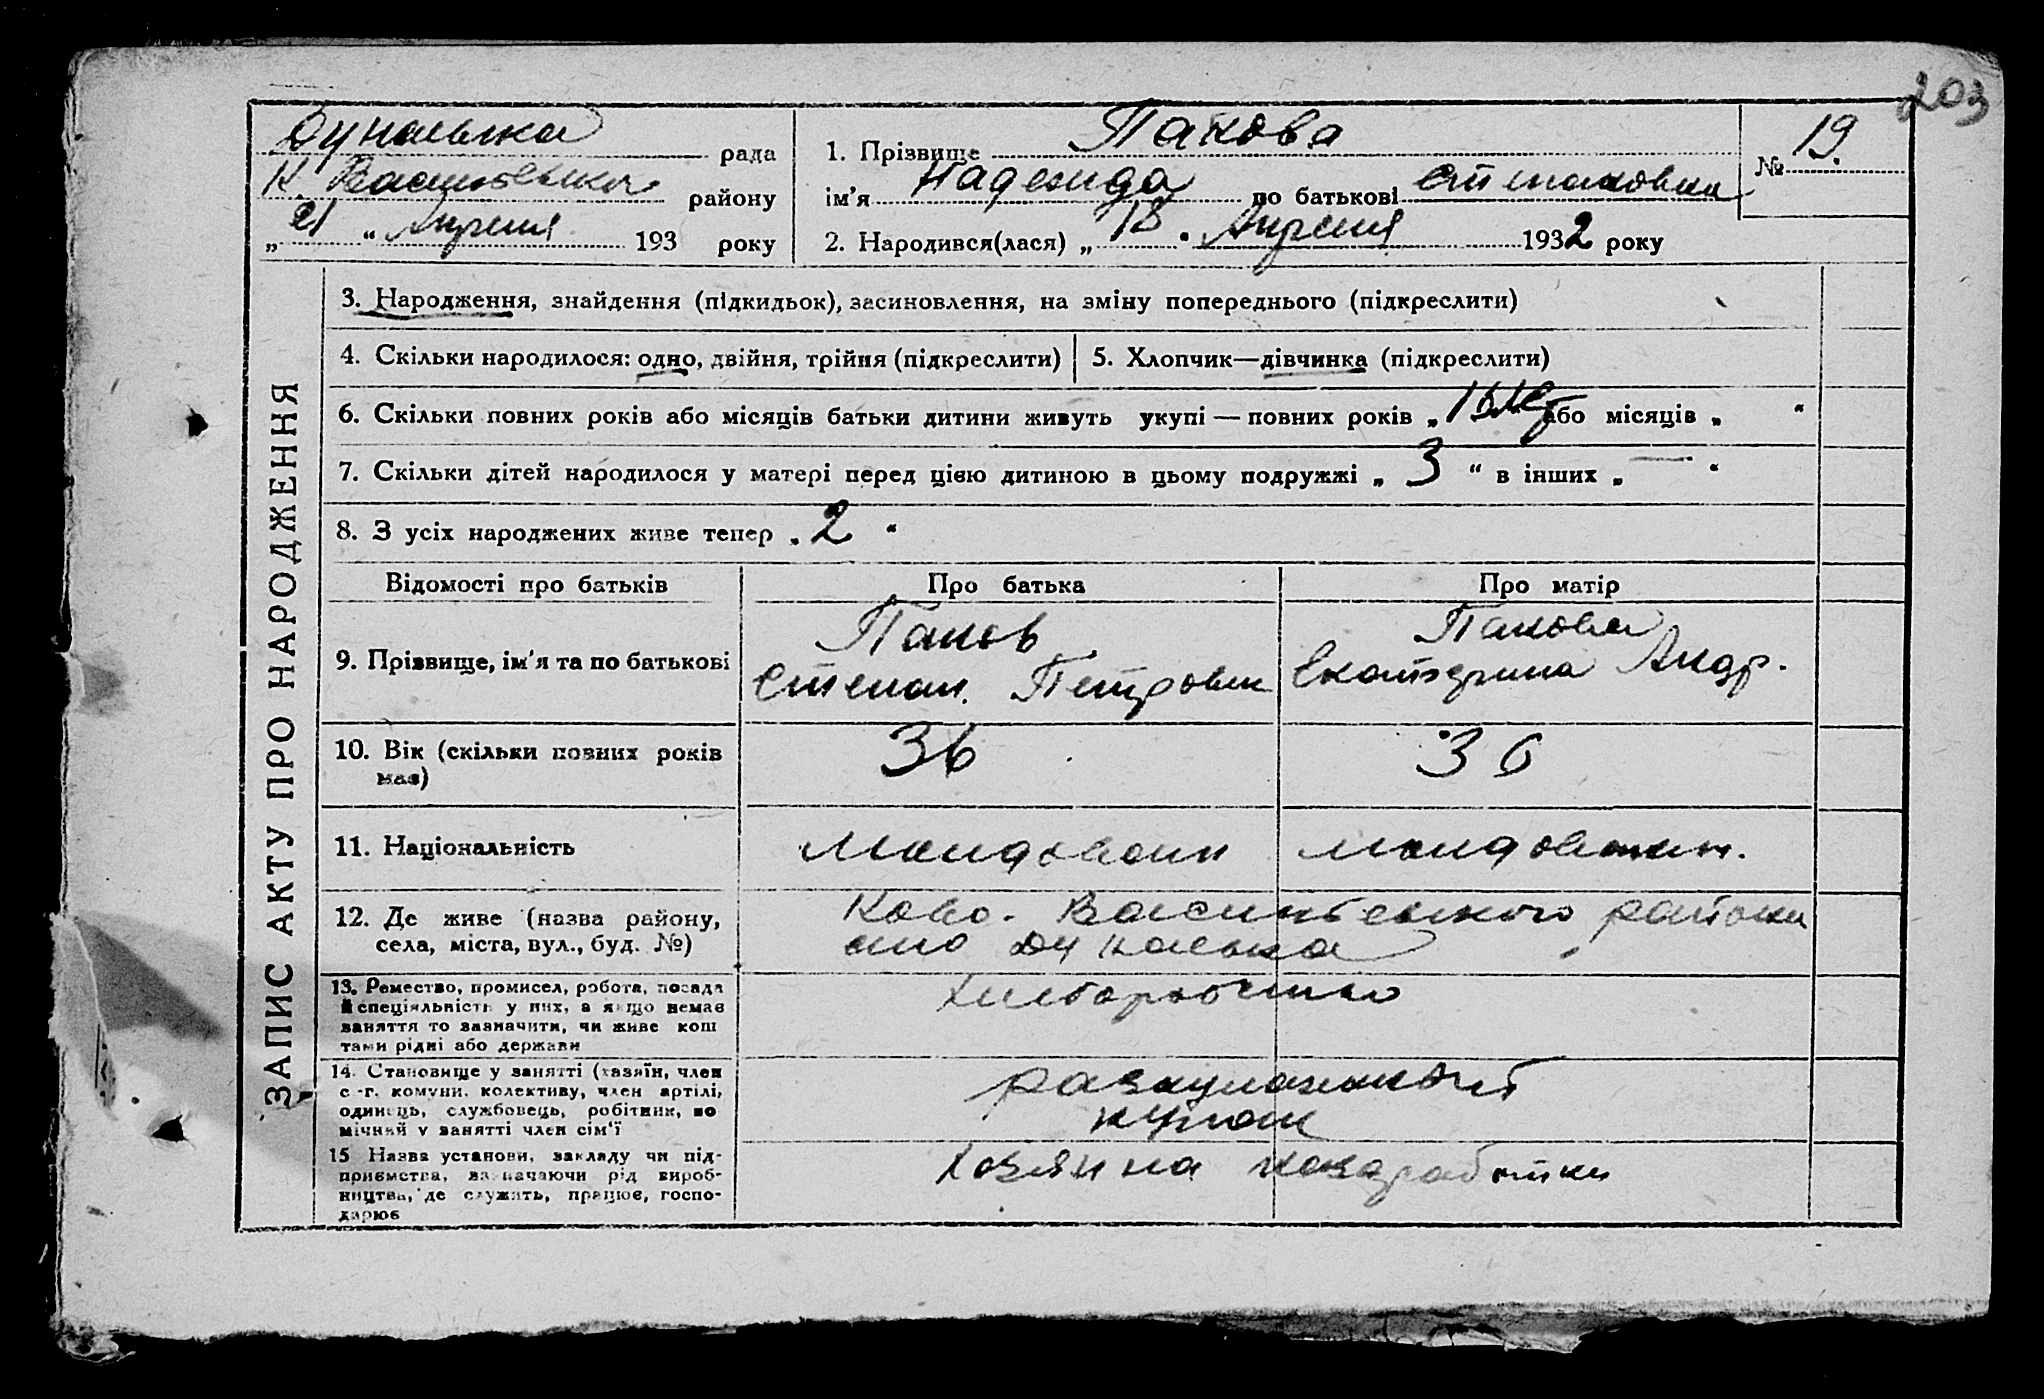 203
Дунаевка рада
Н. Васильевка району
„ 21 “ Апреля 193 року
1. Прізвище Пакова
№ 19.
ім'я Надежда по батькові Степановна
2. Народився(лася) „ 18 “ Апреля 1932 року
ЗАПИС АКТУ ПРО НАРОДЖЕННЯ
3. Народження, знайдення (підкидьок), засиновлення, на зміну попереднього (підкреслити)
4. Скільки народилося: одно, двійня, трійня (підкреслити)
5. Хлопчик—дівчинка (підкреслити)
6. Скільки повних років або місяців батьки дитини живуть укупі — повних років „ або місяців „ “
7. Скільки дітей народилося у матері перед цією дитиною в цьому подружжі „ 3 “ в інших „ — “
8. З усіх народжених живе тепер „ 2 “
Відомості про батьків
Про батька
Про матір
9. Прізвище, ім'я та по батькові
Паков
Степан Петрович
Пакова
Екатерина Андр.
10. Вік (скільки повних років
має)
36
36
11. Національність
12. Де живе (назва району,
села, міста, вул., буд. №)
Ново-Васильевского района
село Дунаевка
13. Ремество, промисел, робота, посада
й спеціяльність у них, а якщо немає
заняття то зазначити, чи живе кош
тами рідні або держави
14. Становище у занятті (хазяїн, член
с.-г. комуни, колективу, член артілі,
одинець, службовець, робітник, по
мічний у занятті член сім'ї
15 Назва установи, закладу чи під-
приємства, зазначаючи рід вироб-
ництва, де служить, працює, госпо-
дарює